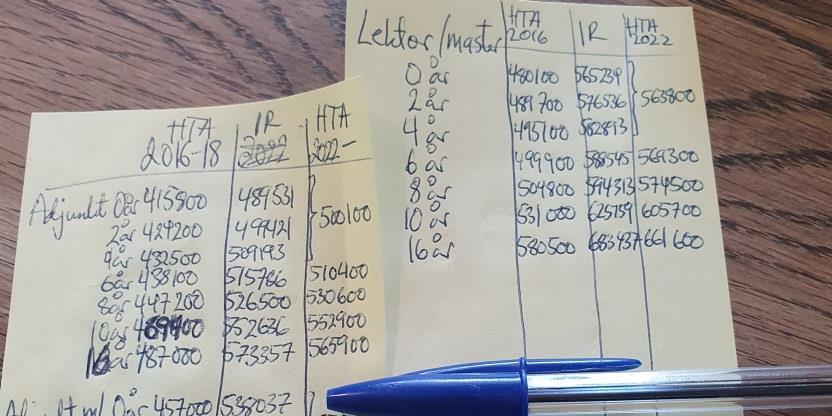 HTA 2016-18 IR 2022 HTA 2022-
Adjunkt 0år 415800 489531
2år 424200 499421 500100
4år 432500 509193
6år 438100 515786 510400
8år 447200 526500 530600
10år 469400 552636 552900
16år 487000 573357 565900
Adjunkt m/ 0år 457000 538037
Lektor/master HTA 2016 IR HTA 2022
0 år 480100 565239
2 år 489700 576536 563800
4 år 495100 582893
6 år 499900 588545 569300
8 år 504800 594313 574500
10 år 531000 625159 605700
16 år 580500 683437 661600